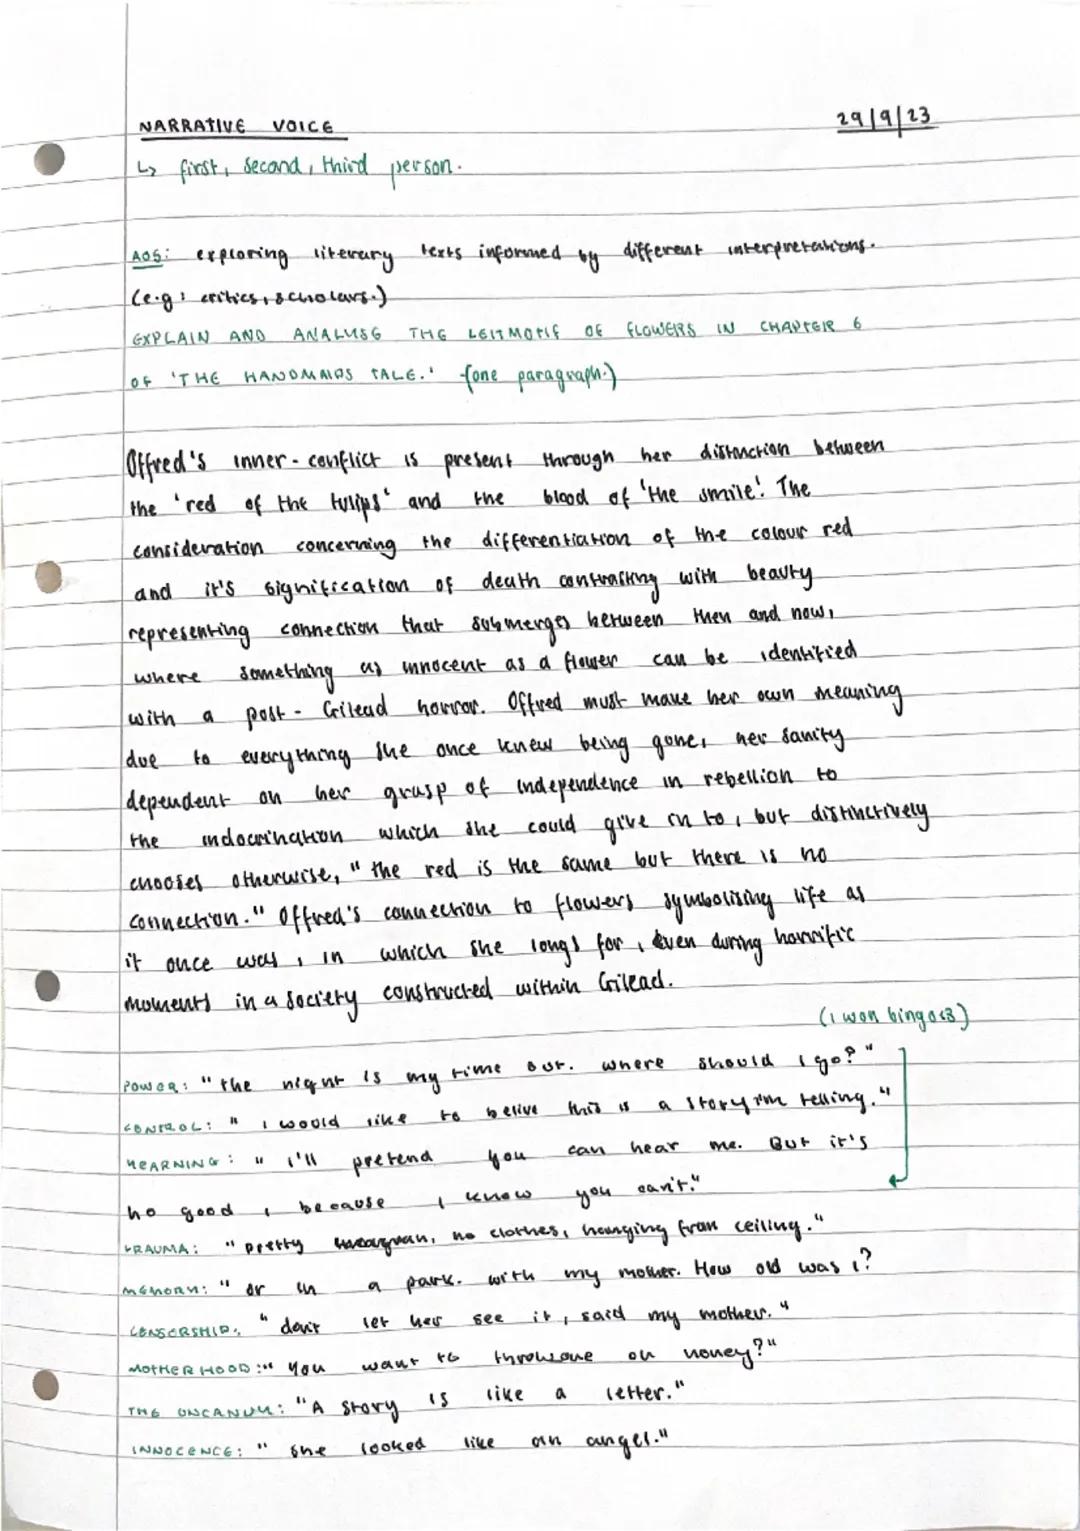 NARRATIVE VOICE 29/9/23
↳ first, second, third person.
AO5: exploring literary texts informed by different interpretations.
(e.g: critics, scholars.)
EXPLAIN AND ANALYSE THE LEITMOTIF OF FLOWERS IN CHAPTER 6
OF 'THE HANDMAIDS TALE.' (one paragraph.)
Offred's inner-conflict is present through her distinction between
the 'red of the tulips' and the blood of 'the smile'. The
consideration concerning the differentiation of the colour red
and it's signification of death contrasting with beauty
representing connection that submerges between then and now,
where something as innocent as a flower can be identified
with a post-Gilead horror. Offred must make her own meaning
due to everything she once knew being gone, her sanity
dependent on her grasp of independence in rebellion to
the indocrination which she could give in to, but distinctively
chooses otherwise, "the red is the same but there is no
connection." Offred's connection to flowers symbolising life as
it once was, in which she longs for, even during horrific
moments in a society constructed within Gilead.
(i won bingo <3)
POWER: "the night is my time out. where should i go?"
CONTROL: "i would like to belive this is a story i'm telling."
MEARNING: "i'll pretend you can hear me. But it's
no good, because i know you can't."
TRAUMA: "pretty woman, no clothes, hanging from ceiling."
MEMORY: "or in a park. with my mother. How old was i?
CENSORSHIP: "don't let her see it, said my mother."
MOTHERHOOD: "You want to throw one on honey?"
THE UNCANNY: "A story is like a letter."
INNOCENCE: "she looked like an angel."